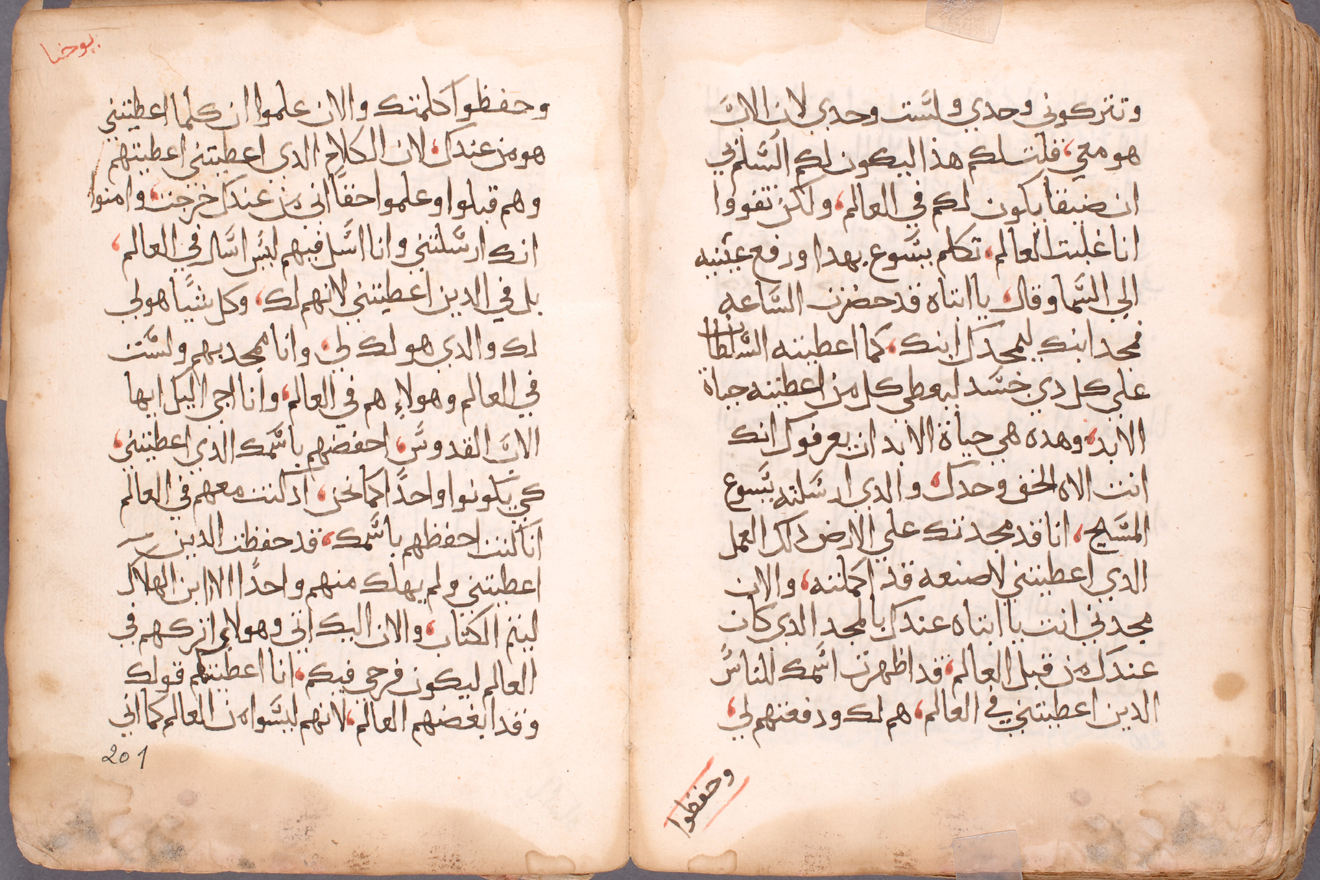 وتتركوني وحدي ولست وحدي لان الاب
هو معي، قلت لكم هذا ليكون لكم السلم في
ان ضيقا يكون لكم في العالم، ولكن تقووا
انا غلبت العالم، تكلم يسوع بهدا ورفع عينيه
الي السما وقال، يا ابتاه قد حضرت الساعه
مجد ابنك ليمجدك ابنك، كما اعطيته السلطان
علي كل دي جسد ليعطي كل من اعطيته حياة
الابد، وهده هي حياة الابد ان يعرفوك انك
انت الاه الحق وحدك، والدي ارسلته يسوع
المسيح، انا قد مجدتك علي الارض دلك العمل
الدي اعطيتني لاصنعه قد اكملته، والان
مجدني انت يا ابتاه عندك بالمجد الدي كان
عندك من قبل العالم، قد اظهرت اسمك للناس
الدين اعطيتني في العالم، هم لك ودفعتهم لي،
وحفظوا
يوحنا
وحفظوا كلمتك والان علموا ان كلما اعطيتني
هو من عندك، لان الكلام الدي اعطيتني اعطيتهم
وهم قبلوا وعلموا حقا اني من عندك خرجت، وامنوا
انك ارسلتني وانا اسل فيهم ليس اسال في العالم،
بل في الدين اعطيتني لانهم لك، وكل شيا هو لي
لك والدي هو لك لي، وانا ممجد بهم ولست
في العالم وهولاء هم في العالم، وانا اجي اليك ايها
الاب القدوس، احفضهم باسمك الدي اعطيتني،
كي يكونوا واحدا كما نحن، اد كنت معهم في العالم
انا كنت احفظهم باسمك، قد حفظت الدين
اعطيتني ولم يهلك منهم واحدا الا ابن الهلاك
ليتم الكتاب، والان اليك اتي وهولاي اتركهم في
العالم ليكون فرحي فيكم، انا اعطيتهم قولك
وقد ابغضهم العالم، لانهم ليسوا من العالم كما اني
201